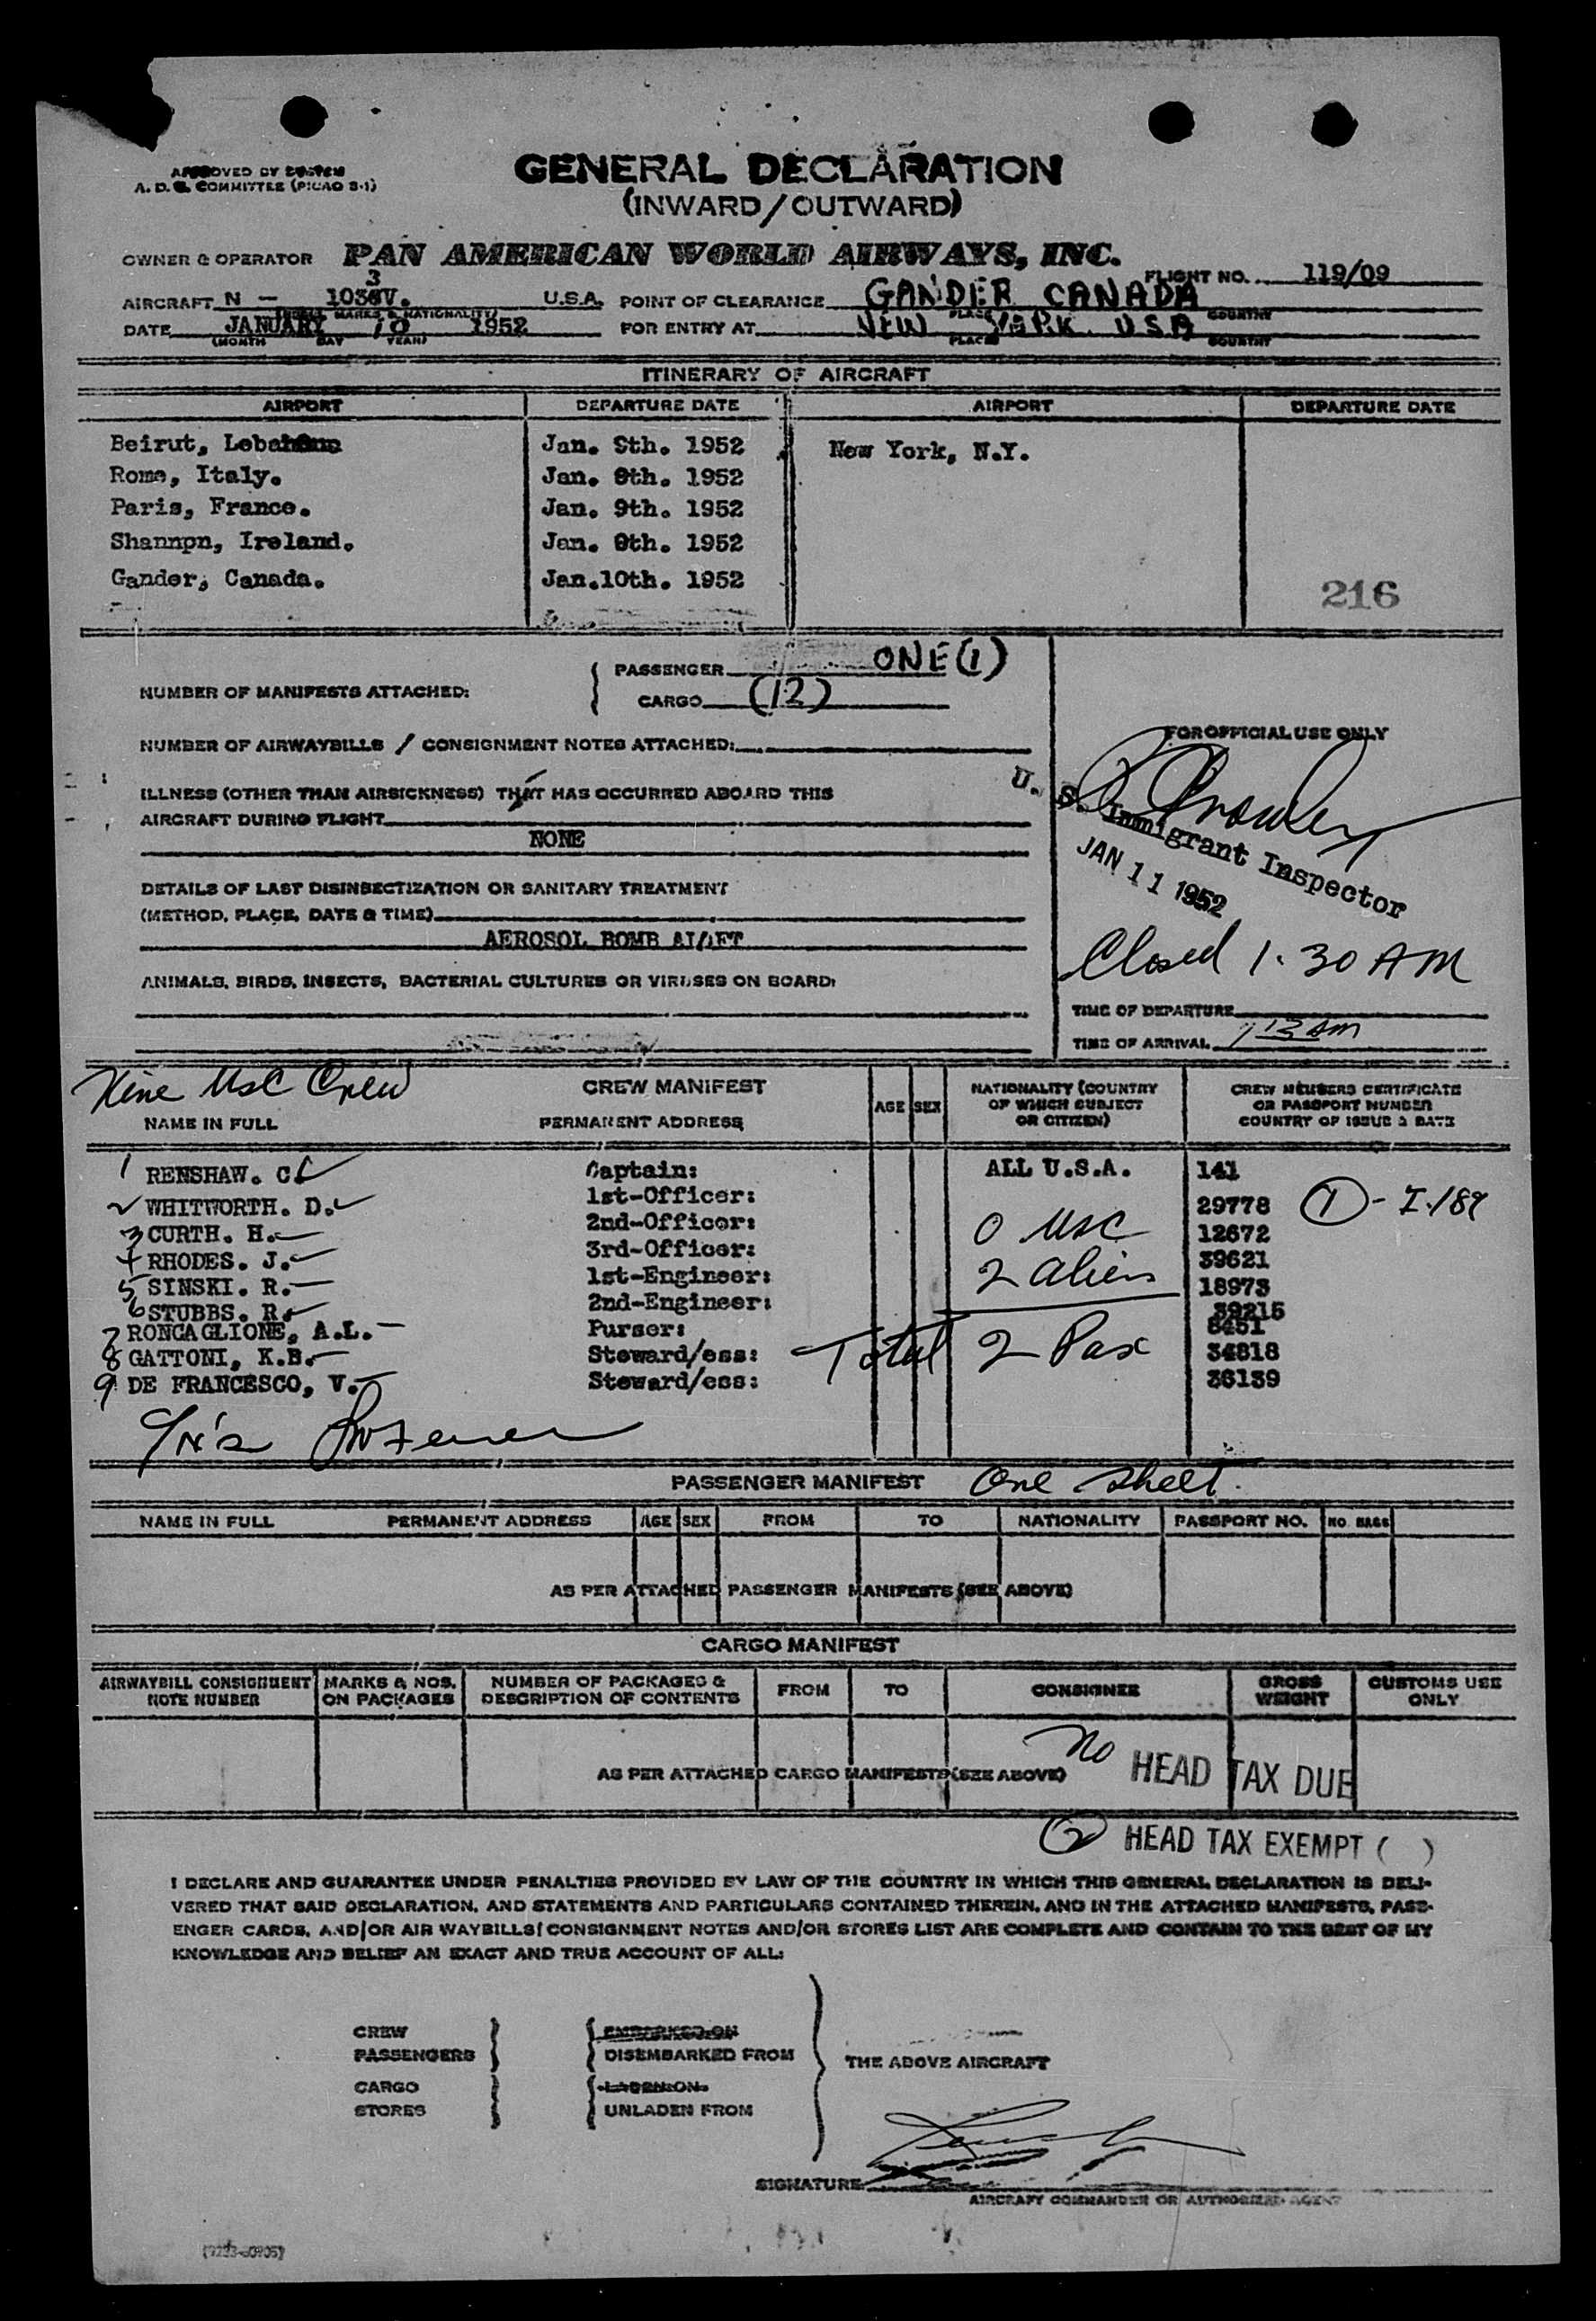 APPROVED BY SYSTEM
A. D. C. COMMITTEE (PICAO S-1)
GENERAL DECLARATION
(INWARD/OUTWARD)
OWNER & OPERATOR PAN AMERICAN WORLD AIRWAYS, INC.
FLIGHT NO. 119/09
3
AIRCRAFT N - 1036V. U.S.A. POINT OF CLEARANCE GANDER CANADA
(MARKS & NATIONALITY) PLACE COUNTRY
DATE JANUARY 10 1952 FOR ENTRY AT NEW YORK USA
(MONTH DAY YEAR) PLACE COUNTRY
ITINERARY OF AIRCRAFT
AIRPORT DEPARTURE DATE AIRPORT DEPARTURE DATE
Beirut, Jan. 9th. 1952 New York, N.Y.
Rome, Italy. Jan. 9th. 1952
Paris, France. Jan. 9th. 1952
Shannpn, Ireland. Jan. 9th. 1952
Gander, Canada. Jan.10th. 1952
216
NUMBER OF MANIFESTS ATTACHED:
PASSENGER ONE (1)
CARGO (12)
FOR OFFICIAL USE ONLY
NUMBER OF AIRWAYBILLS / CONSIGNMENT NOTES ATTACHED:
ILLNESS (OTHER THAN AIRSICKNESS) THAT HAS OCCURRED ABOARD THIS
AIRCRAFT DURING FLIGHT
NONE
U. S. Immigrant Inspector
JAN 11 1952
DETAILS OF LAST DISINSECTIZATION OR SANITARY TREATMENT
(METHOD, PLACE, DATE & TIME)
AEROSOL BOMB
Closed 1.30 AM
ANIMALS, BIRDS, INSECTS, BACTERIAL CULTURES OR VIRUSES ON BOARD:
TIME OF DEPARTURE
TIME OF ARRIVAL 113 AM
Nine USC Crew
CREW MANIFEST
NAME IN FULL PERMANENT ADDRESS AGE SEX NATIONALITY (COUNTRY OF WHICH SUBJECT OR CITIZEN) CREW MEMBERS CERTIFICATE OR PASSPORT NUMBER COUNTRY OF ISSUE & DATE
1 RENSHAW. C. Captain: ALL U.S.A. 141
2 WHITWORTH. D. 1st-Officer: 29778 (1) - I.189
3 CURTH. H. 2nd-Officer: 0 USC 12672
4 RHODES. J. 3rd-Officer: 39621
5 SINSKI. R. 1st-Engineer: 2 aliens 18973
6 STUBBS. R. 2nd-Engineer: 39215
7 RONCAGLIONE, A.L. Purser: 8451
8 GATTONI, K.B. Steward/ess: Total 2 Pax 34818
9 DE FRANCESCO, V. Steward/ess: 36139
PASSENGER MANIFEST One sheet.
NAME IN FULL PERMANENT ADDRESS AGE SEX FROM TO NATIONALITY PASSPORT NO. NO. BAGS
AS PER ATTACHED PASSENGER MANIFESTS (SEE ABOVE)
CARGO MANIFEST
AIRWAYBILL CONSIGNMENT NOTE NUMBER MARKS & NOS. ON PACKAGES NUMBER OF PACKAGES & DESCRIPTION OF CONTENTS FROM TO CONSIGNEE GROSS WEIGHT CUSTOMS USE ONLY
AS PER ATTACHED CARGO MANIFESTS (SEE ABOVE)
No HEAD TAX DUE
(2) HEAD TAX EXEMPT ( )
I DECLARE AND GUARANTEE UNDER PENALTIES PROVIDED BY LAW OF THE COUNTRY IN WHICH THIS GENERAL DECLARATION IS DELI-
VERED THAT SAID DECLARATION, AND STATEMENTS AND PARTICULARS CONTAINED THEREIN, AND IN THE ATTACHED MANIFESTS, PASS-
ENGER CARDS, AND/OR AIR WAYBILLS/CONSIGNMENT NOTES AND/OR STORES LIST ARE COMPLETE AND CONTAIN TO THE BEST OF MY
KNOWLEDGE AND BELIEF AN EXACT AND TRUE ACCOUNT OF ALL:
CREW EMBARKED ON
PASSENGERS DISEMBARKED FROM
THE ABOVE AIRCRAFT
CARGO LADEN ON
STORES UNLADEN FROM
SIGNATURE
AIRCRAFT COMMANDER OR AUTHORIZED AGENT